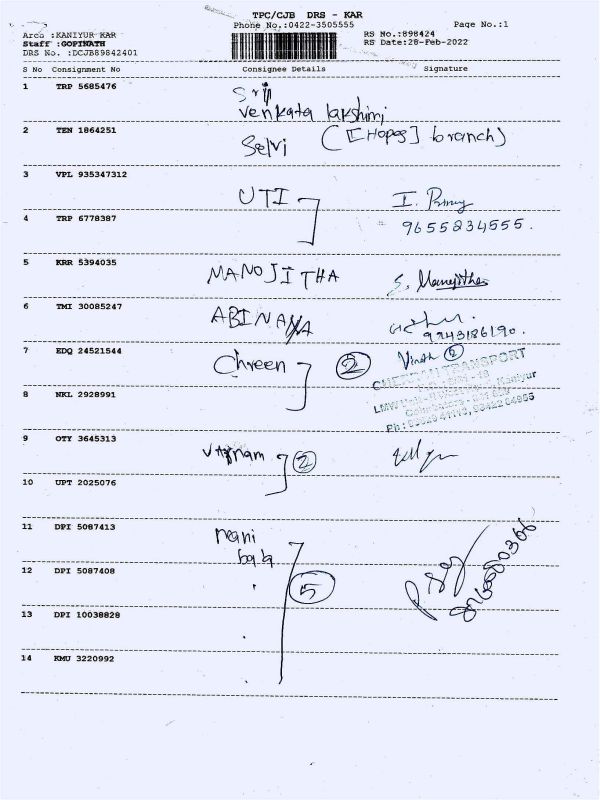 TPC/CJB DRS - KAR
Phone No.:0422-3505555
Page No.:1
Area :KANIYUR KAR
Staff :GOPINATH
DRS No. :DCJB89842401
RS No.:898424
RS Date:28-Feb-2022
S No Consignment No Consignee Details Signature
1 TRP 5685476 Sri
Venkata lakshmi
2 TEN 1864251 Selvi ([Hopes] branch)
3 VPL 935347312 UTI I.
4 TRP 6778387 9655234555.
5 KRR 5394035 MANOJITHA S. Manojitha
6 TMI 30085247 ABINAYA
9943186190.
7 EDQ 24521544 Chreen 2 Vinoth 2
TRANSPORT
LMW Kaniyur
Ph:
8 NKL 2928991
9 OTY 3645313 2
10 UPT 2025076
11 DPI 5087413 mani
bala
12 DPI 5087408 5
13 DPI 10038828
14 KMU 3220992